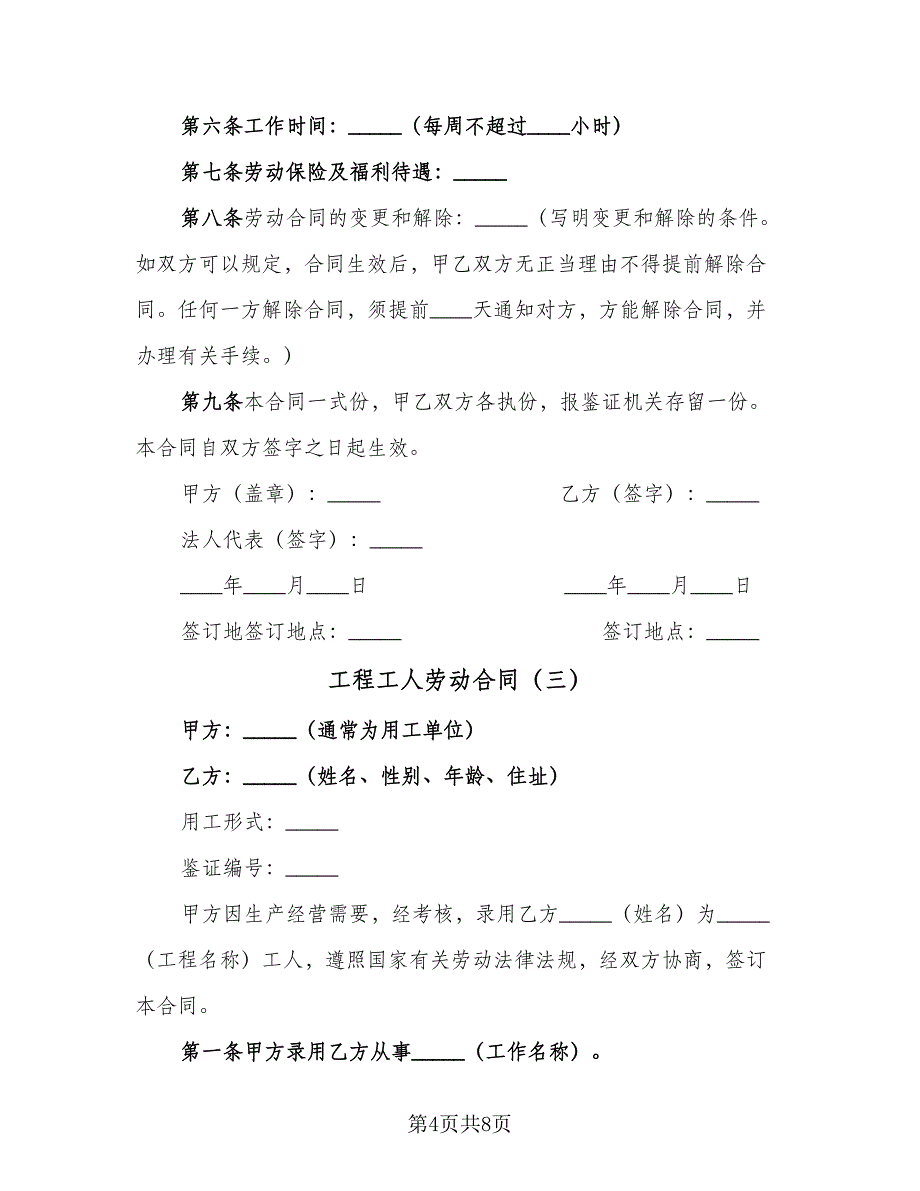 第六条工作时间：_____（每周不超过____小时）
第七条劳动保险及福利待遇：_____
第八条劳动合同的变更和解除：_____（写明变更和解除的条件。
如双方可以规定，合同生效后，甲乙双方无正当理由不得提前解除合
同。任何一方解除合同，须提前____天通知对方，方能解除合同，并
办理有关手续。）
第九条本合同一式份，甲乙双方各执份，报鉴证机关存留一份。
本合同自双方签字之日起生效。
甲方（盖章）：_____ 乙方（签字）：_____
法人代表（签字）：_____
____年____月____日 ____年____月____日
签订地签订地点：_____ 签订地点：_____
工程工人劳动合同（三）
甲方：_____（通常为用工单位）
乙方：_____（姓名、性别、年龄、住址）
用工形式：_____
鉴证编号：_____
甲方因生产经营需要，经考核，录用乙方_____（姓名）为_____
（工程名称）工人，遵照国家有关劳动法律法规，经双方协商，签订
本合同。
第一条甲方录用乙方从事_____（工作名称）。
第4页共8页